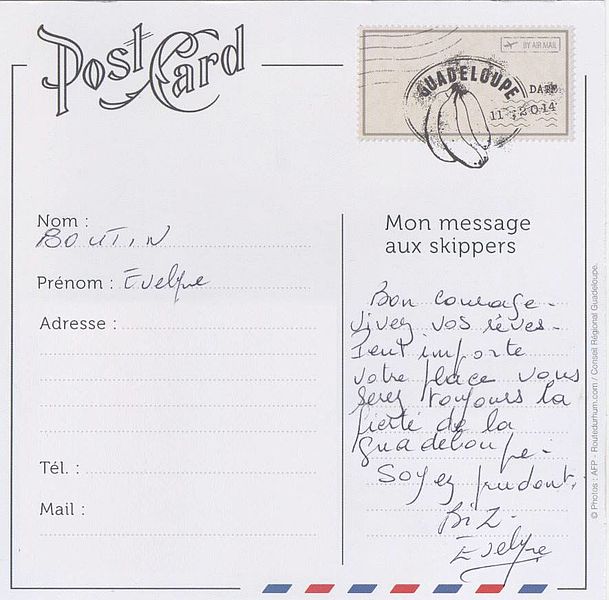 Post Card
BY AIR MAIL
GUADELOUPE
DATE
11 2014
Nom :
BOUTIN
Prénom : Evelyne
Adresse :
Tél. :
Mail :
Mon message
aux skippers
Bon courage -
vivez vos rêves -
Peut importe
votre place vous
serez toujours la
fierté de la
guadeloupe.
Soyez prudent.
Biz.
Evelyne
© Photos : AFP - Routedurhum.com / Conseil Régional Guadeloupe.